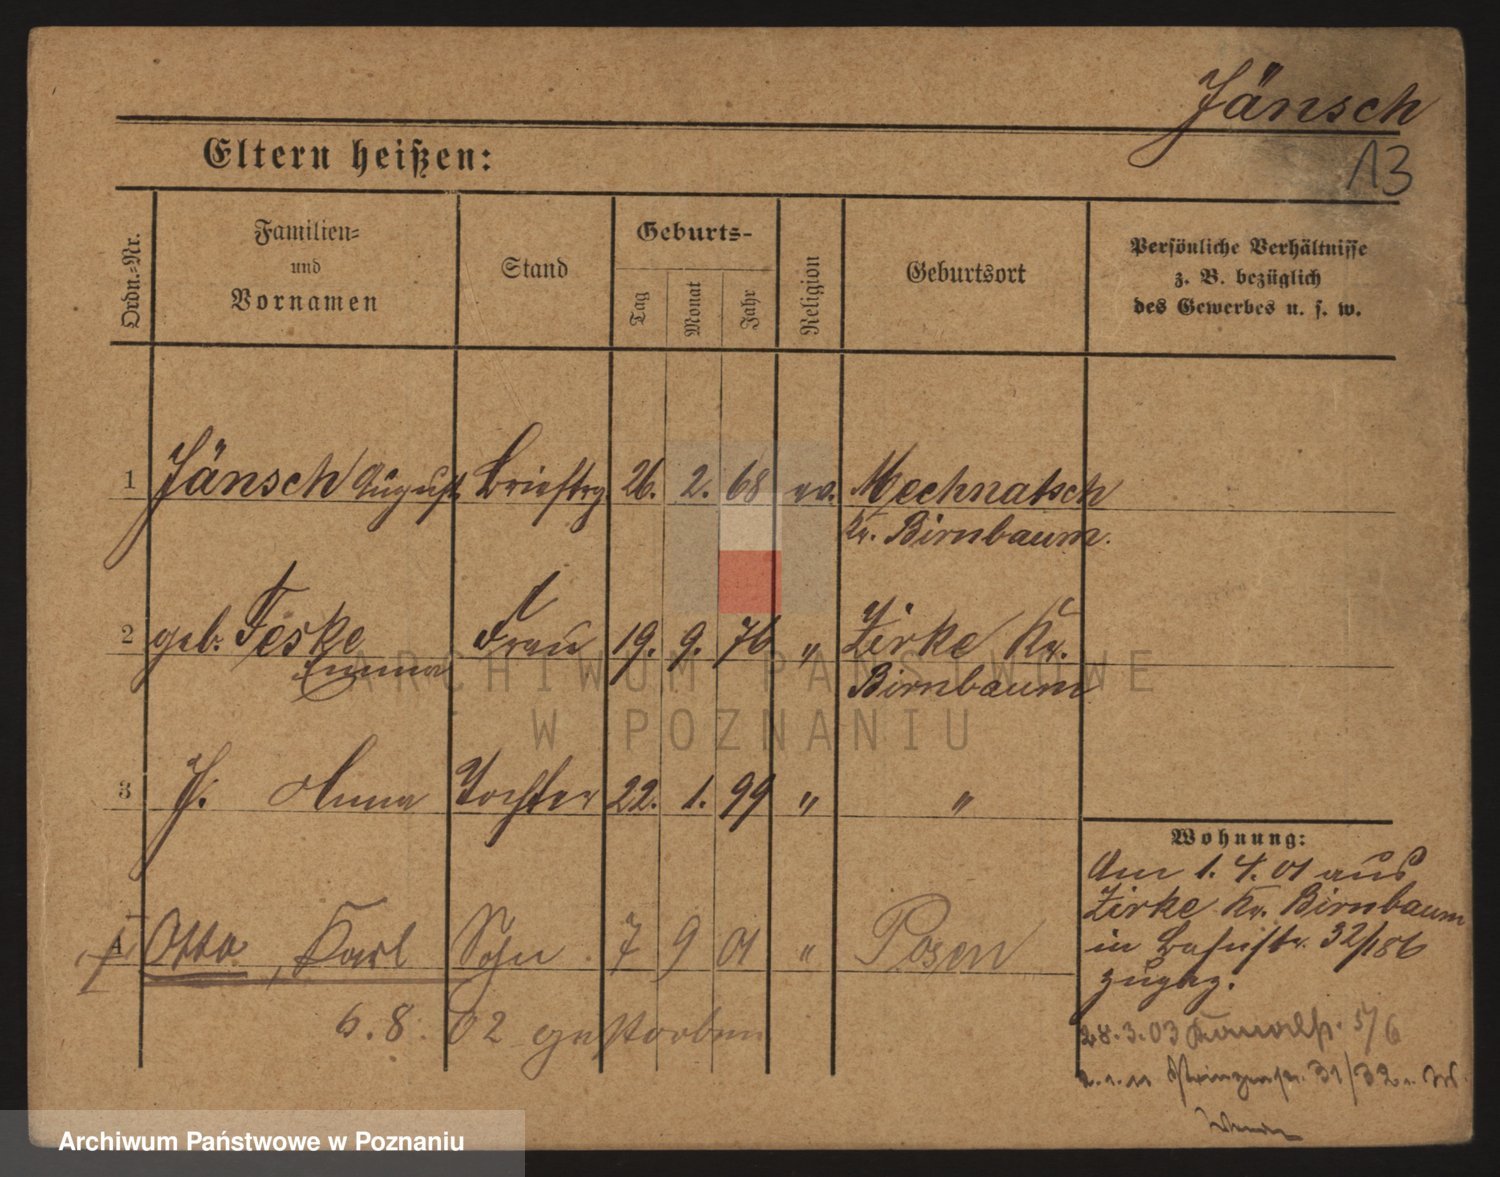 Jänsch
13
Eltern heißen:
Ordn.-Nr.
Familien-
und
Vornamen
Stand
Geburts-
Tag
Monat
Jahr
Religion
Geburtsort
Persönliche Verhältnisse
z. B. bezüglich
des Gewerbes u. s. w.
1 Jänsch August Brieftrg 26. 2. 68 ev. Mechnatsch
Kr. Birnbaum.
2 geb. Feske Frau 19. 9. 76 " Zirke Kr.
Emma Birnbaum
3 J. Anna Tochter 22. 1. 99 " "
4 Otto, Karl Sohn 7 9 01 " Posen
6. 8. 02 gestorben
Wohnung:
Am 1. 4. 01 aus
Zirke Kr. Birnbaum
in Bahnstr. 32/186
zugzg.
28.3.03 Kanalstr. 5/6
2.1.11 31/32
ARCHIWUM PAŃSTWOWE
W POZNANIU
Archiwum Państwowe w Poznaniu